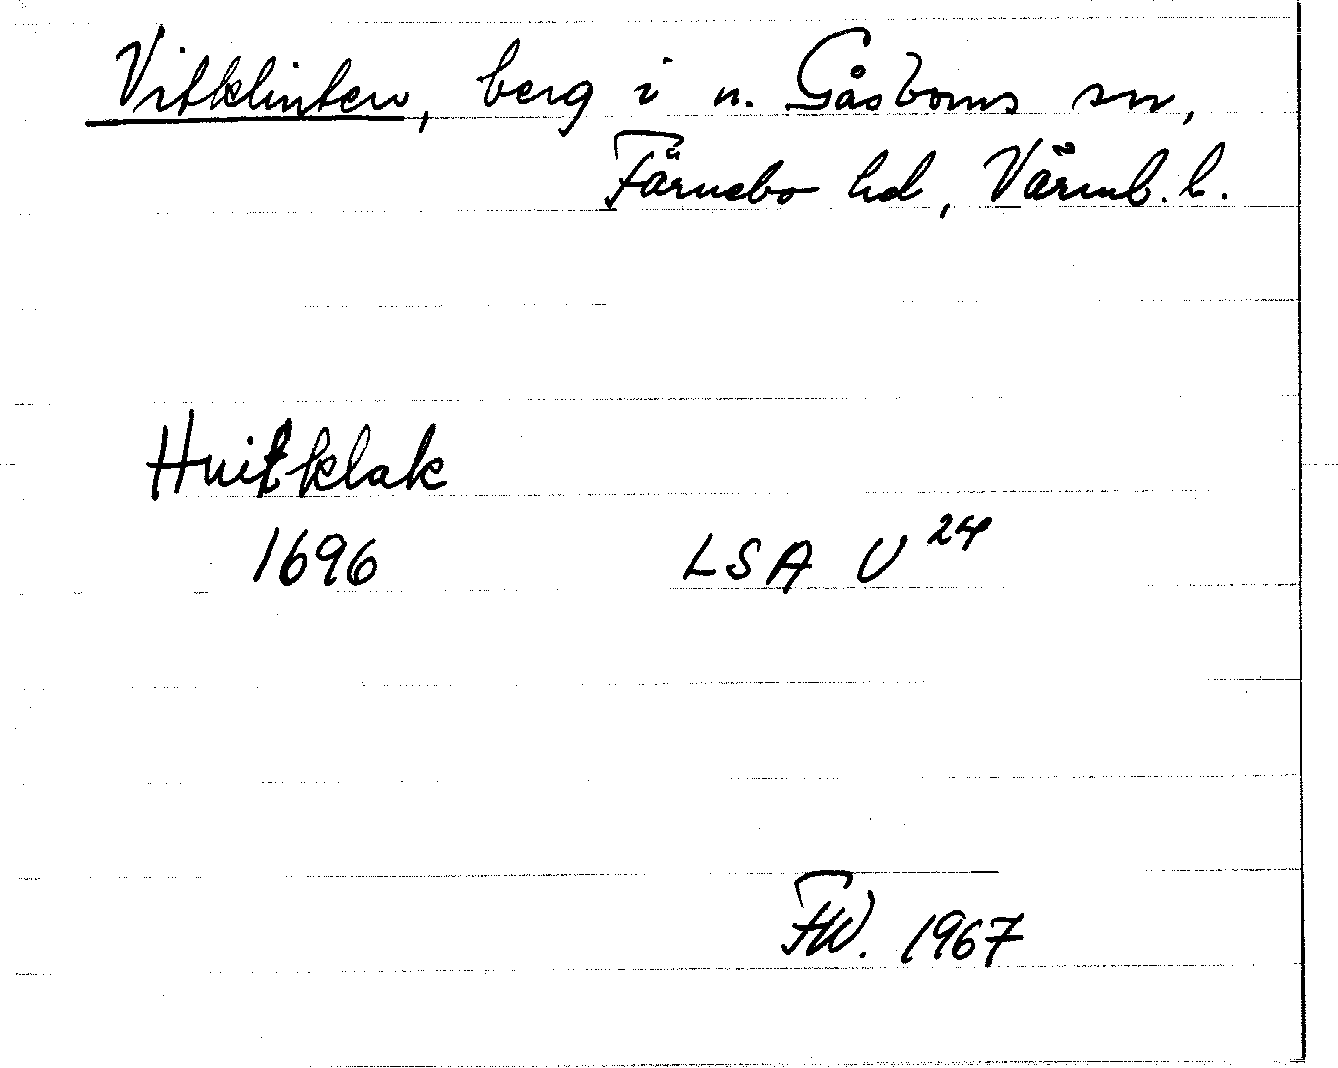 Vitklinten, berg i n. Gåsborns sn,
Färnebo hd, Värml. l.
Huitklak
1696 LSA U 24
FW. 1967